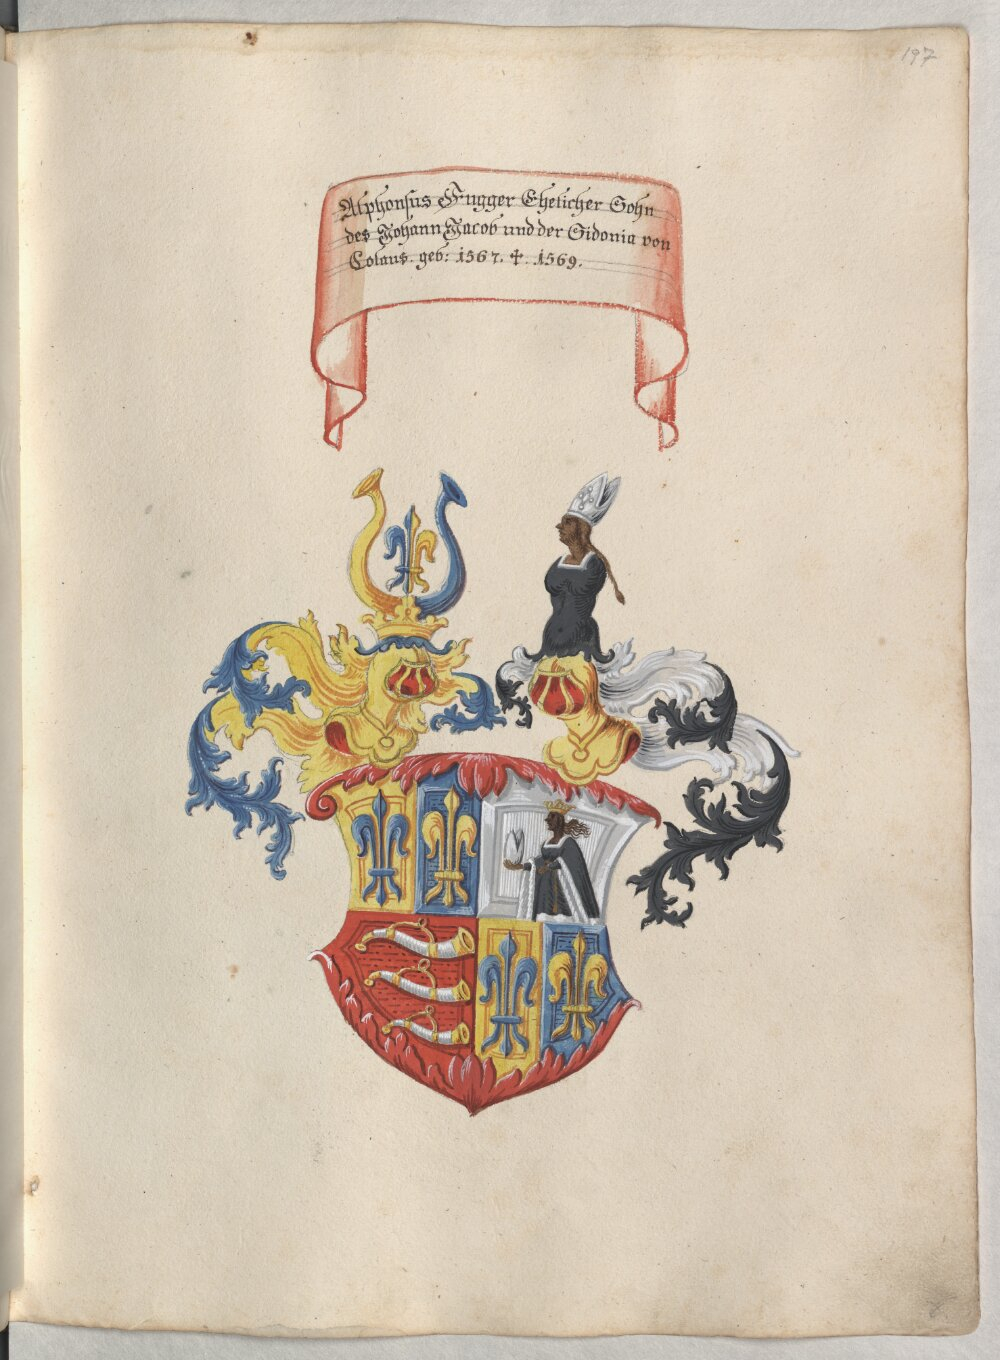 197
Alphonsus Fugger Ehelicher Sohn
des Johann Jacob und der Sidonia von
Colaus. geb: 1567. ✝. 1569.